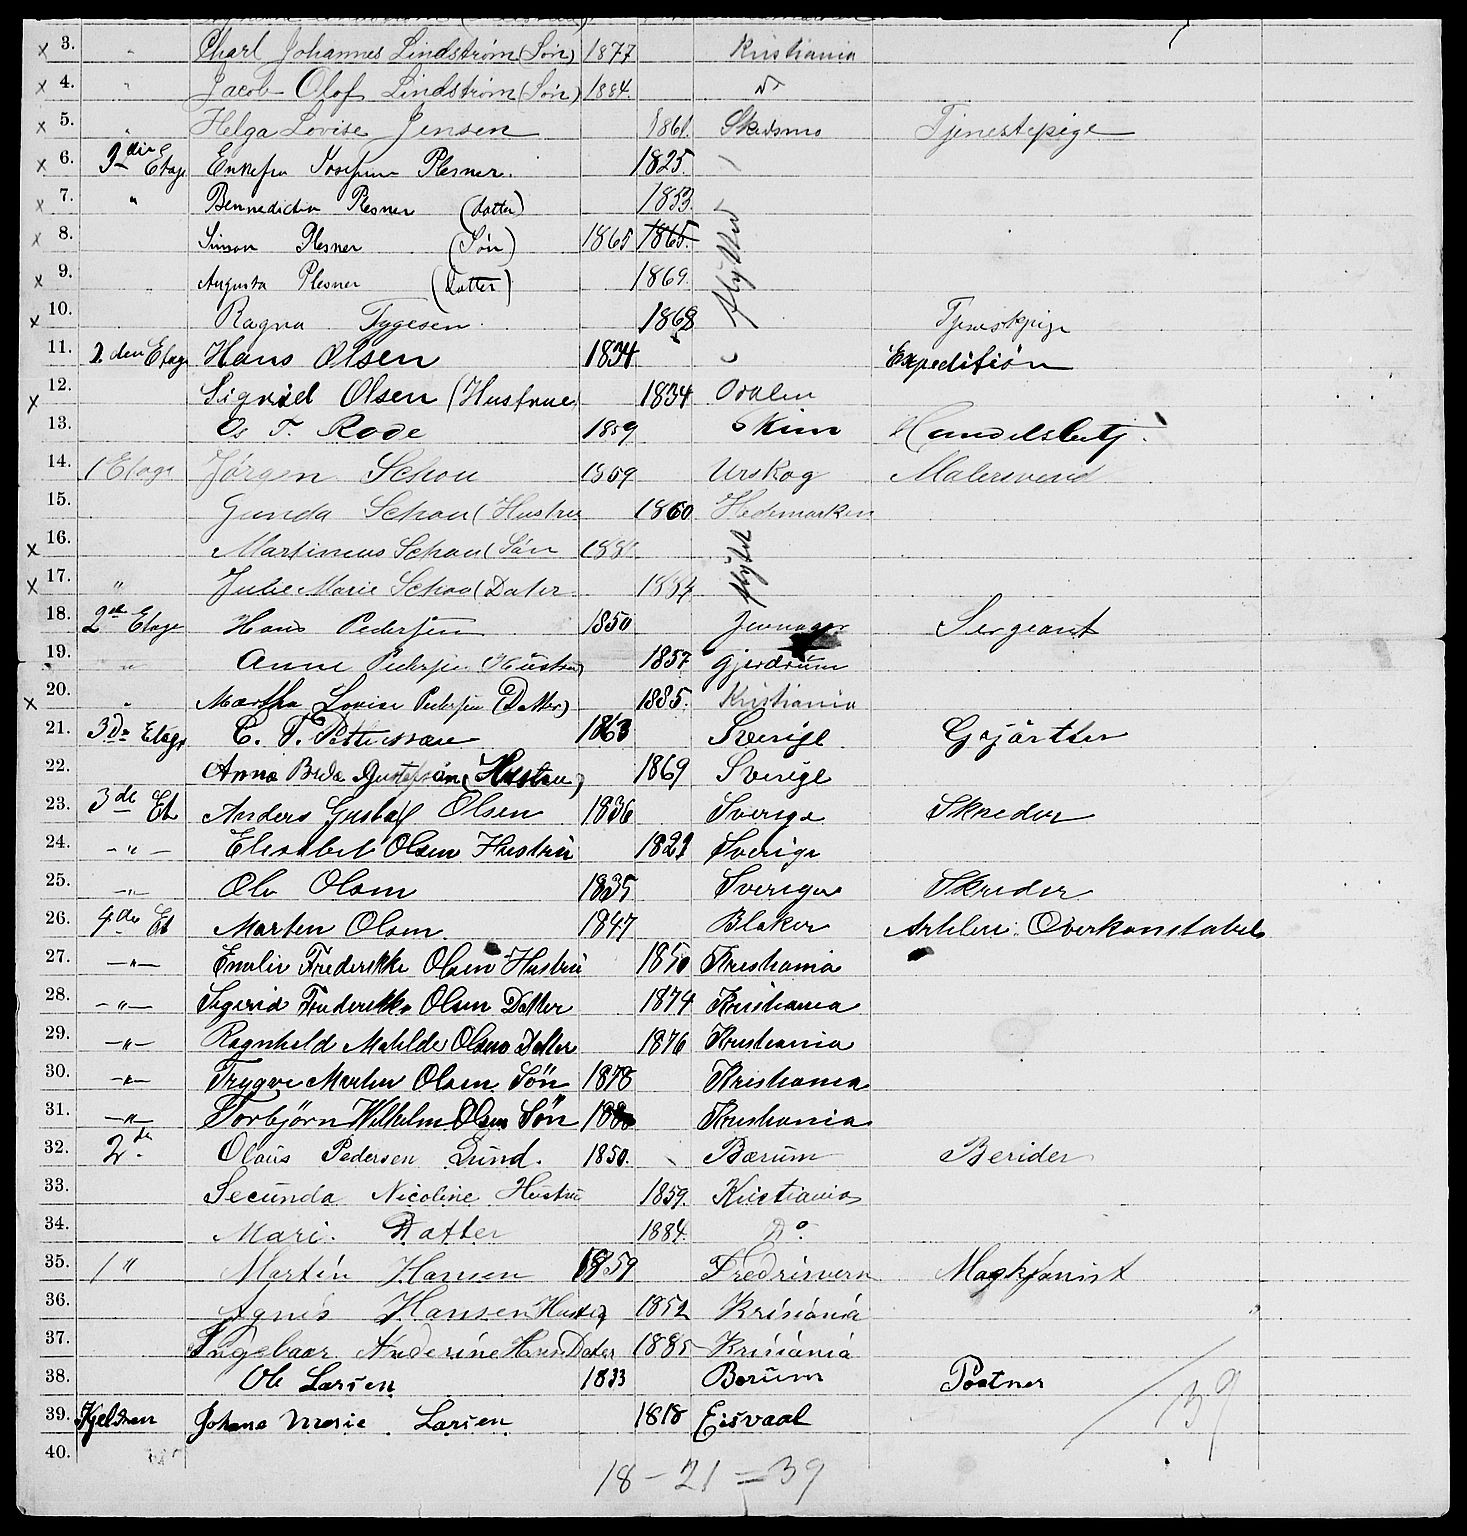 x 3. " Charl Johannes Lindstrøm (Søn) 1877 Kristiania
x 4. " Jacob Olof Lindstrøm (Søn) 1884. do
x 5. " Helga Lovise Jensen 1861. Skedsmo Tjenestepige
x 6. 3die Etage Enkefru Josefine Plesner. 1825.
x 7. " Bennedicta Plesner (datter) 1853.
x 8. Simon Plesner (Søn) 1865 1865. flyttet
x 9. " Augusta Plesner (Datter) 1869.
x 10. Ragna Tygesen 1868 Tjenestpige
11. 2den Etage Hans Olsen 1834 Expedition
x 12. Sigrid Olsen (Hustrue 1834 Odalen
13. Os T. Rode 1859 Skim Handelsbetj.
14. 1 Etage Jørgen Schou 1859 Urskog Malersvend
15. Gunda Schou (Hustru 1860 Hedemarken
x 16. Martineus Schou (Søn 188 flytet
x 17. " Julie Marie Schou (Dater 1884
18. 2den Etage Hans Pedersen 1850 Jevnager Sergeant
19. " Anne Pedersen (Hustru) 1857 Gjerdrum
x 20. " Martha Lovise Pedersen (Datter) 1885. Kristiania
21. 3de Etage C. F. 1863 Sverige Gjørtler
22. Anna Gustafson (Hustru) 1869 Sverige
23. 3de Et Anders Gustaf Olsen 1836 Sverige Skreder
24. - " - Elisabet Olsen Hustru 1821 Sverige
25. - " - Ole Olsen 1835 Sverige Skreder
26. 4de Et Marten Olsen 1847 Blaker Artileri Overkonstabel
27. - " - Emelie Frederikke Olsen Hustru 1850 Kristiania
28. - " - Sigrid Frederikke Olsen Datter 1874 Kristiania
29. - " - Ragnhild Matilde Olsen Datter 1876 Kristiania
30. - " - Trygve Marten Olsen Søn 1878 Kristiania
31. - " - Torbjørn Wilhelm Olsen Søn 1880 Kristiania
32. 2de. Olaus Pedersen Lund. 1850. Bærum Berider
33. Secunda Nicoline Hustru 1859. Kristiania
34. Mari. Datter 1884. Do.
35. 1 " Martin Hansen 1859 Fredrisvern Maskjønist
36. Agnes Hansen Hustru 1852 Krisiania
37. Ingebaar Anderine Hansen Dater 1885 Krisiania
38. Ole Larsen 1833 Berum Postner
39. Kjeldren Johana Marie Larsen 1818 Eisvaal
40.
/ 39
18 - 21 = 39